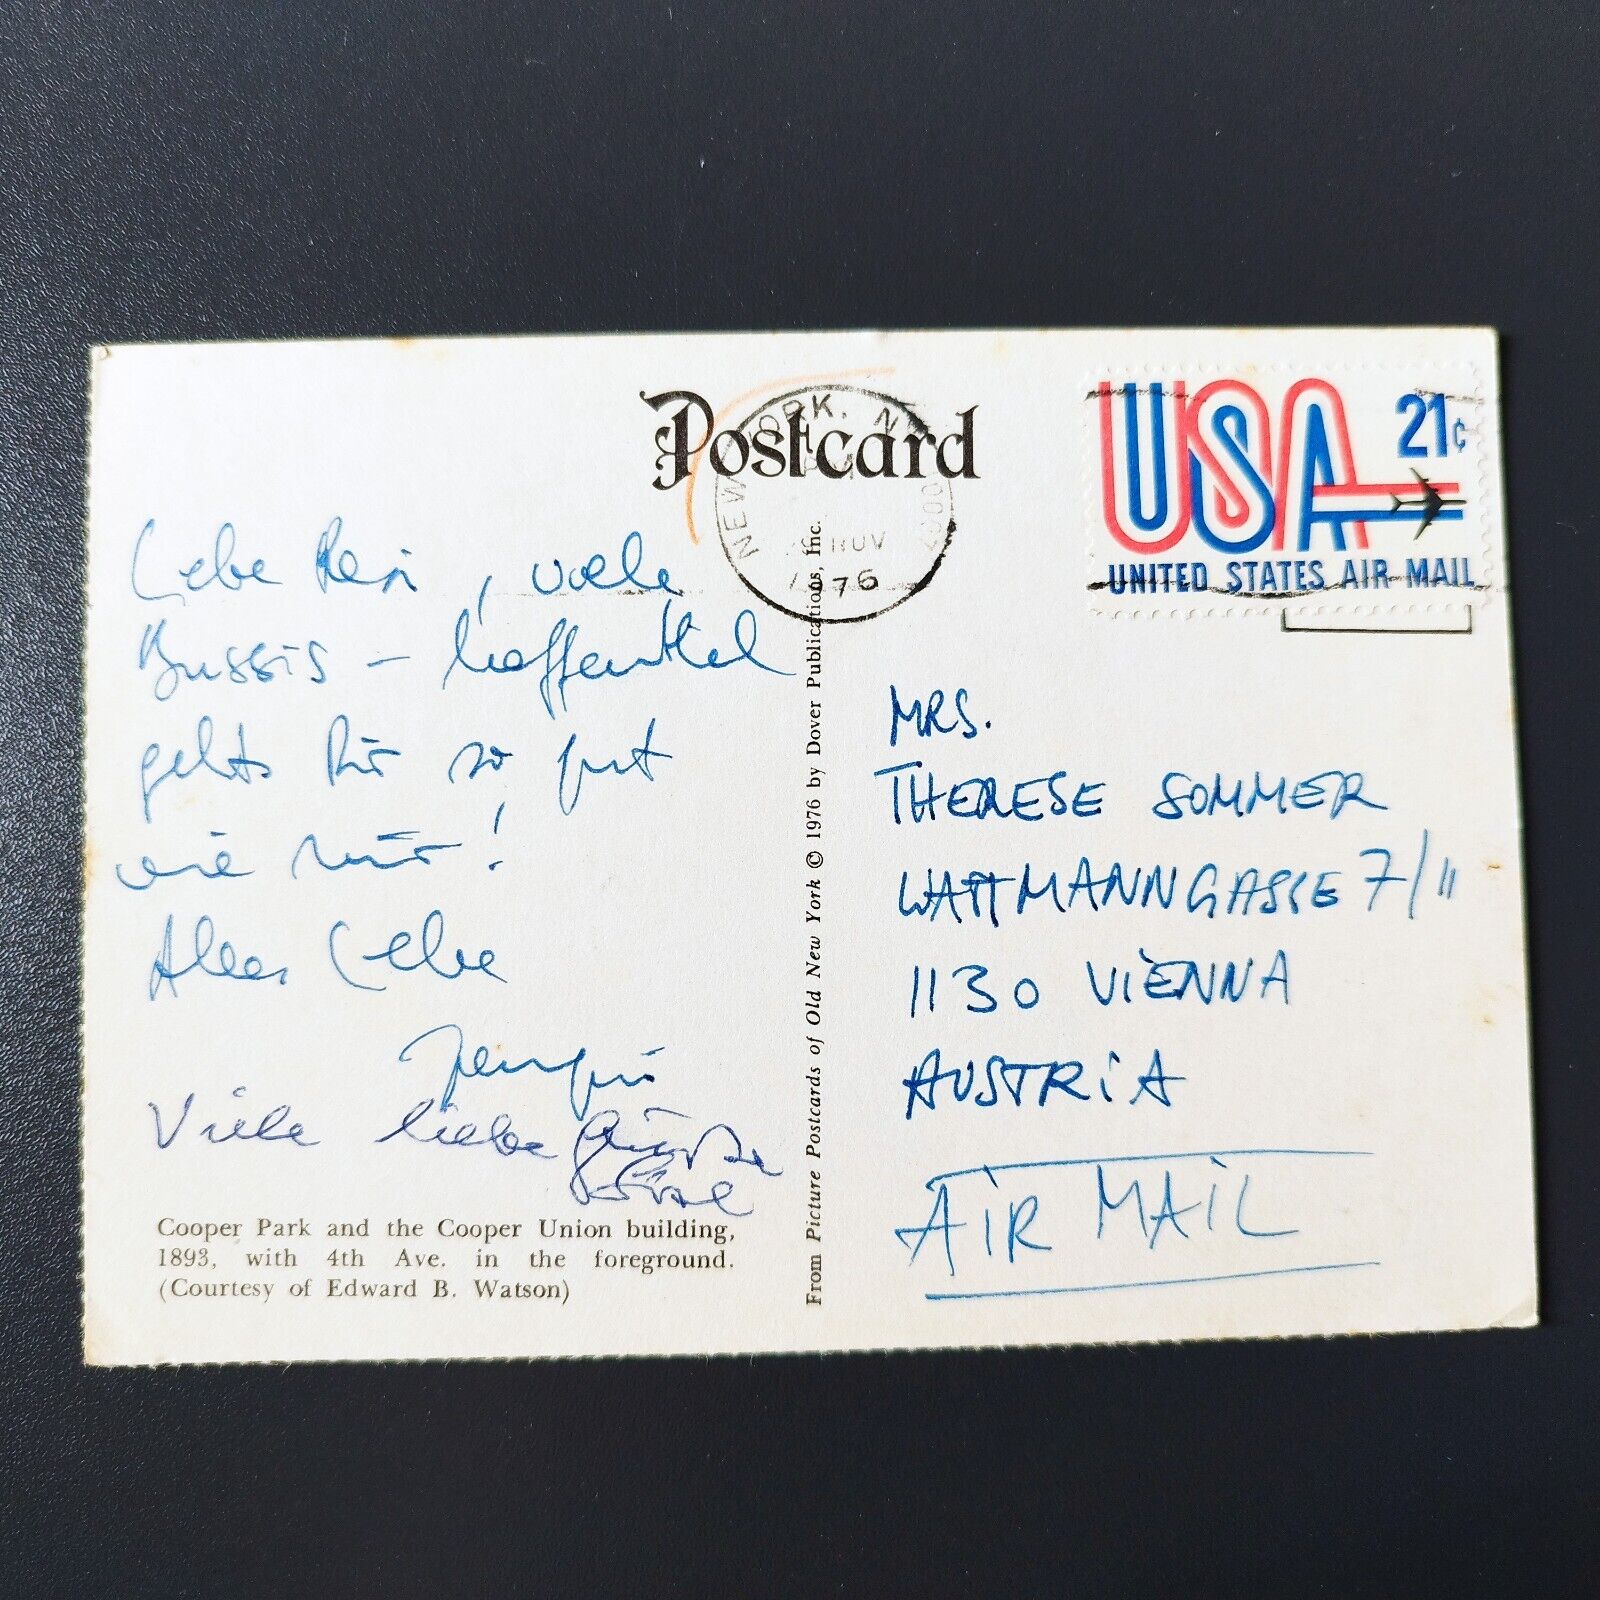 Postcard
NEW YORK, N.Y.
NOV
1976
USA 21¢
UNITED STATES AIR MAIL
Liebe Resi, viele
Bussis – hoffentlich
gehts Dir so gut
wie mir!
Alles Liebe
Viele liebe Grüsse
Cooper Park and the Cooper Union building,
1893, with 4th Ave. in the foreground.
(Courtesy of Edward B. Watson)
From Picture Postcards of Old New York © 1976 by Dover Publications, Inc.
MRS.
THERESE SOMMER
WATTMANNGASSE 7/11
1130 VIENNA
AUSTRIA
AIR MAIL